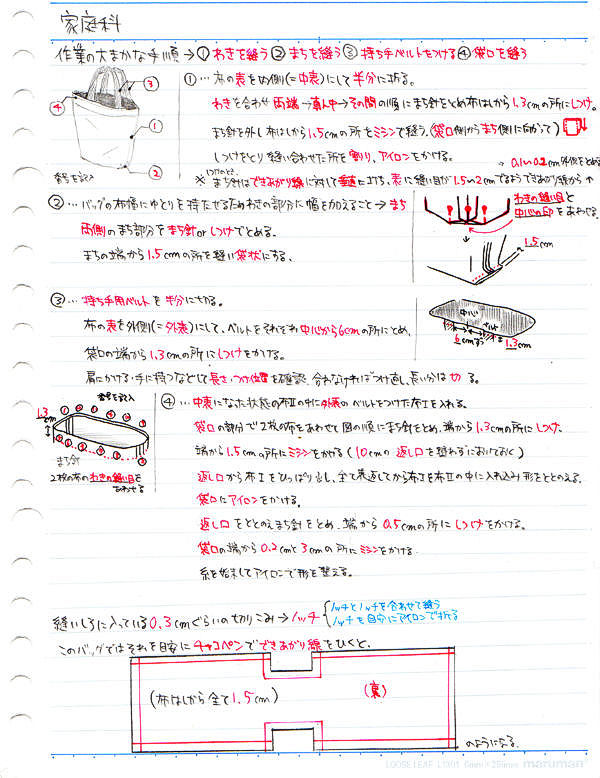 家庭科
作業の大まかな手順→①わきを縫う②まちを縫う③持ち手ベルトをつける④袋口を縫う
①…布の表を内側(=中表)にして半分に折る。
わきを合わせ両端→真ん中→その間の順にまち針をとめ布はしから1.3cmの所にしつけ。
まち針を外し布はしから1.5cmの所をミシンで縫う。(袋口側からまち側に向かって)
しつけをとり縫い合わせた所を割り、アイロンをかける。
→0.1〜0.2cm外側をとめ
※まち針はできあがり線に対して垂直に打ち、表に縫い目が1.5〜2cmでるようできあがり線から↑
しつけのとき、
③
④
①
②
番号を記入
②…バッグの布幅にゆとりを持たせるためわきの部分に幅を加えること→まち
両側のまち部分をまち針orしつけでとめる。
まちの端から1.5cmの所を縫い袋状にする。
わきの縫い目と
中心の印をあわせる。
1.5cm
③…持ち手用ベルトを半分に切る。
布の表を外側(=外表)にして、ベルトをそれぞれ中心から6cmの所にとめ、
袋口の端から1.3cmの所にしつけをかける。
肩にかける・手に持つなどして長さ・つけ位置を確認。合わなければつけ直し、長い分は切る。
中心
6cmずつ
1.3cm
番号を記入
1.3cm
まち針
2枚の布のわきの縫い目を
あわせる
④…中表になった状態の布Ⅱの中に外表のベルトをつけた布Ⅰを入れる。
袋口の部分で2枚の布をあわせて図の順にまち針をとめ、端から1.3cmの所にしつけ。
端から1.5cmの所にミシンをかける(10cmの返し口を縫わずにおいておく)
返し口から布Ⅰをひっぱり出し、全て表返してから布Ⅰを布Ⅱの中に入れ込み形をととのえる。
袋口にアイロンをかける。
返し口をととのえまち針をとめ、端から0.5cmの所にしつけをかける。
袋口の端から0.2cmと3cmの所にミシンをかける
糸を始末してアイロンで形を整える。
縫いしろに入っている0.3cmぐらいの切りこみ→ノッチ
ノッチとノッチを合わせて縫う
ノッチを目安にアイロンで折る
このバッグではそれを目安にチャコペンでできあがり線をひくと、
(布はしから全て1.5cm)
(裏)
のようになる。
LOOSE LEAF L1301 6mm×28lines maruman